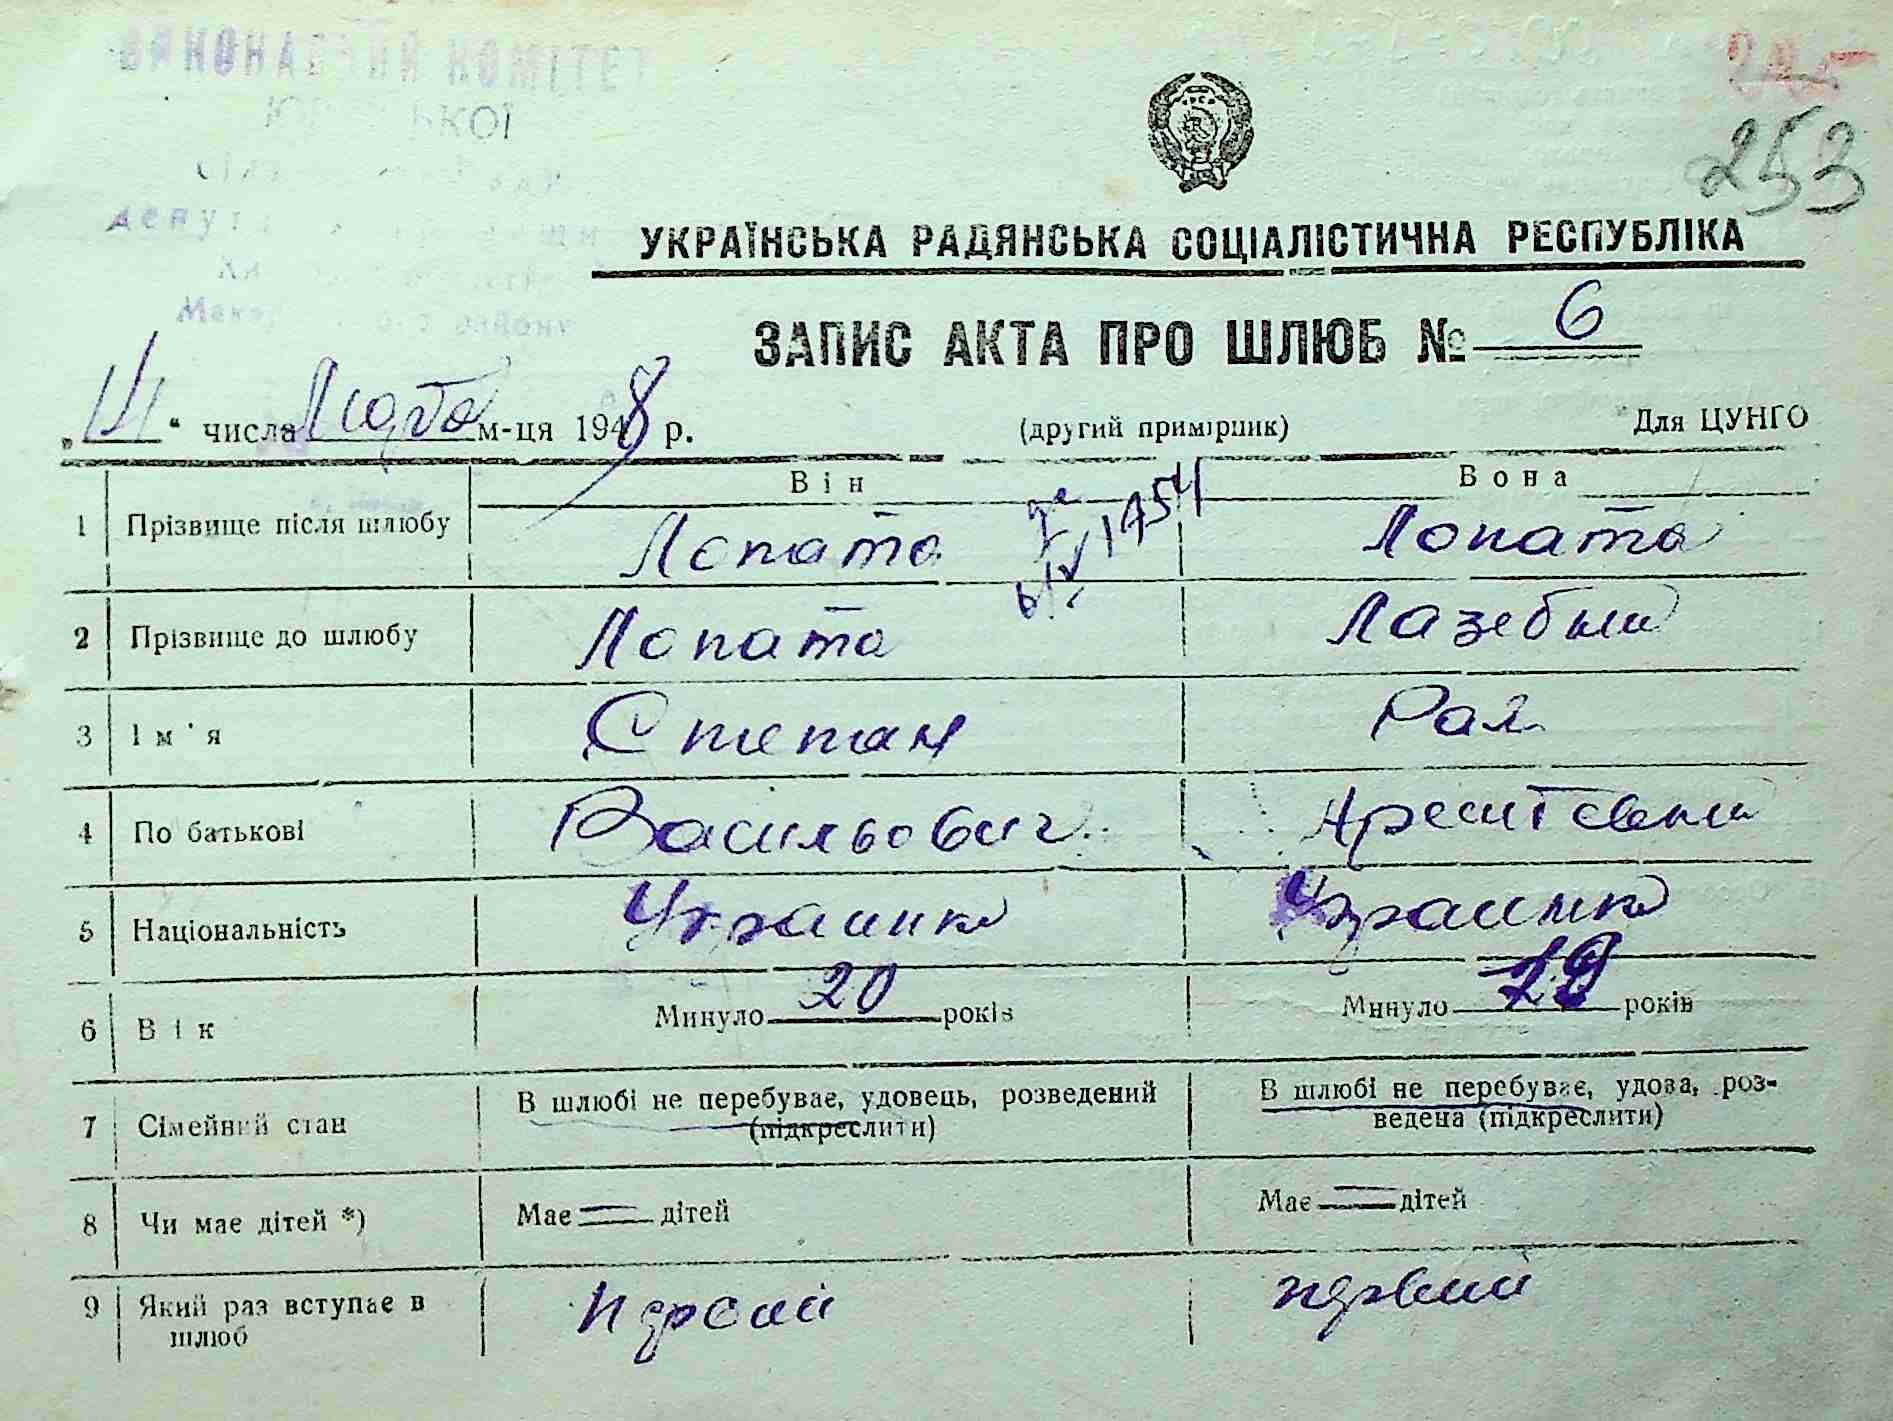 ВИКОНАВЧИЙ КОМІТЕТ
253
УКРАЇНСЬКА РАДЯНСЬКА СОЦІАЛІСТИЧНА РЕСПУБЛІКА
ЗАПИС АКТА ПРО ШЛЮБ № 6
„ “ числа м-ця 1948 р. (другий примірник) Для ЦУНГО
Він Вона
1 Прізвище після шлюбу Лопата Лопата
2 Прізвище до шлюбу Лопата
3 Ім'я Степан Рая
4 По батькові Васильович
5 Національність
6 Вік Минуло 20 років Минуло 19 років
7 Сімейний стан В шлюбі не перебуває, удовець, розведений (підкреслити) В шлюбі не перебуває, удова, роз-
ведена (підкреслити)
8 Чи має дітей *) Має дітей Має дітей
9 Який раз вступає в шлюб первий первий